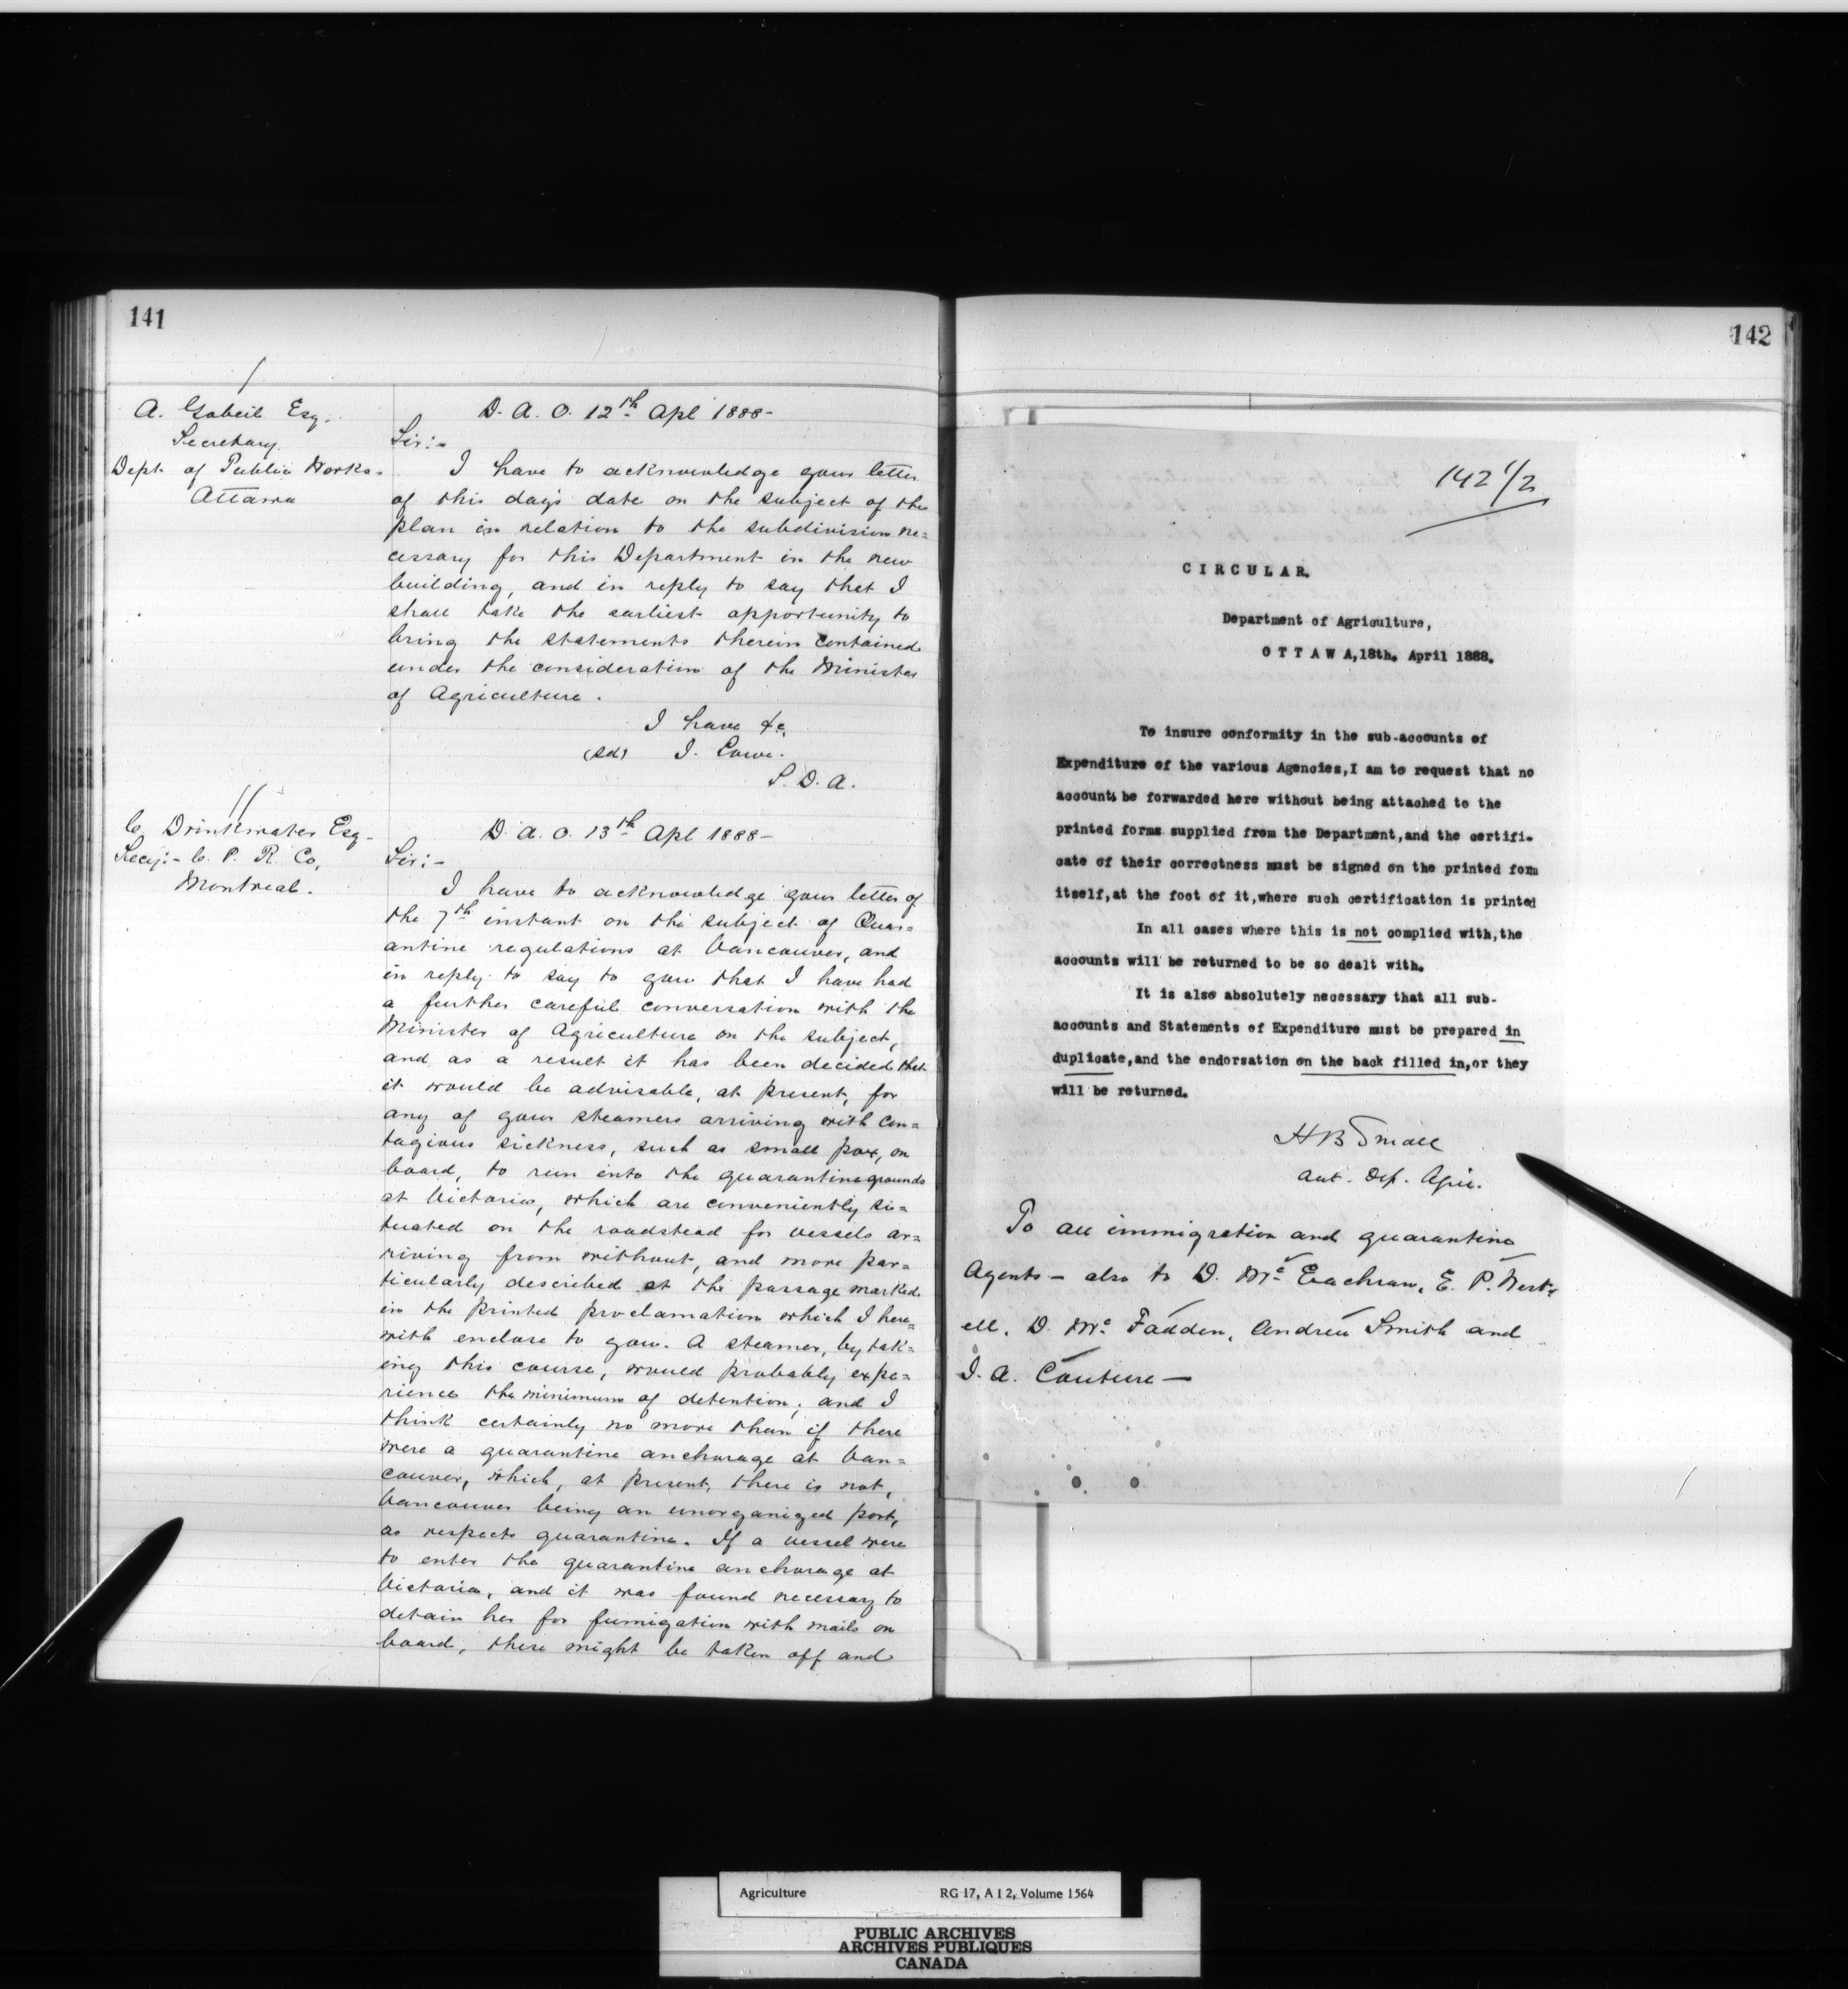 141
A. Gobeil Esq.
Secretary
Dept. of Public Works.
Ottawa
D. A. O. 12th Apl 1888-
Sir:-
I have to acknowledge your letter
of this day's date on the subject of the
plan in relation to the subdivision ne=
cessary for this Department in the new
building, and in reply to say that I
shall take the earliest opportunity to
bring the statements therein contained
under the consideration of the Minister
of Agriculture.
I have &c.
(sd) J. Lowe.
S. D. A.
C. Drinkwater Esq-
Secy:- C. P. R. Co,
Montreal.
D. A. O. 13th Apl 1888-
Sir:-
I have to acknowledge your letter of
the 7th instant on the subject of Quar=
antine regulations at Vancouver, and
in reply to say to you that I have had
a further careful conversation with the
Minister of Agriculture on the subject,
and as a result it has been decided that
it would be advisable, at present, for
any of your steamers arriving with con=
tagious sickness, such as small pox, on
board, to run into the quarantine grounds
at Victoria, which are conveniently si=
tuated on the roadstead for vessels ar=
riving from without, and more par=
ticularly described at the passage marked
in the printed proclamation which I here=
with enclose to you. A steamer, by tak=
ing this course, would probably expe=
rience the minimum of detention; and I
think certainly no more than if there
were a quarantine anchorage at Van=
couver, which, at present, there is not,
Vancouver being an unorganized port,
as respects quarantine. If a vessel were
to enter the quarantine anchorage at
Victoria, and it was found necessary to
detain her for fumigation with mails on
board, these might be taken off and
142
142 1/2
CIRCULAR.
Department of Agriculture,
OTTAWA,18th. April 1888.
To insure conformity in the sub-accounts of
Expenditure of the various Agencies,I am to request that no
accounts be forwarded here without being attached to the
printed forms supplied from the Department,and the certifi-
cate of their correctness must be signed on the printed form
itself,at the foot of it,where such certification is printed
In all cases where this is not complied with,the
accounts will be returned to be so dealt with.
It is also absolutely necessary that all sub-
accounts and Statements of Expenditure must be prepared in
duplicate,and the endorsation on the back filled in,or they
will be returned.
H B Small
Dep. Agric.
To all immigration and quarantine
Agents - also to D. Mc Eachran, E. P. West-
ell, D. Mc Fadden, Andrew Smith and
J. A. Couture -
Agriculture RG 17, A I 2, Volume 1564
PUBLIC ARCHIVES
ARCHIVES PUBLIQUES
CANADA